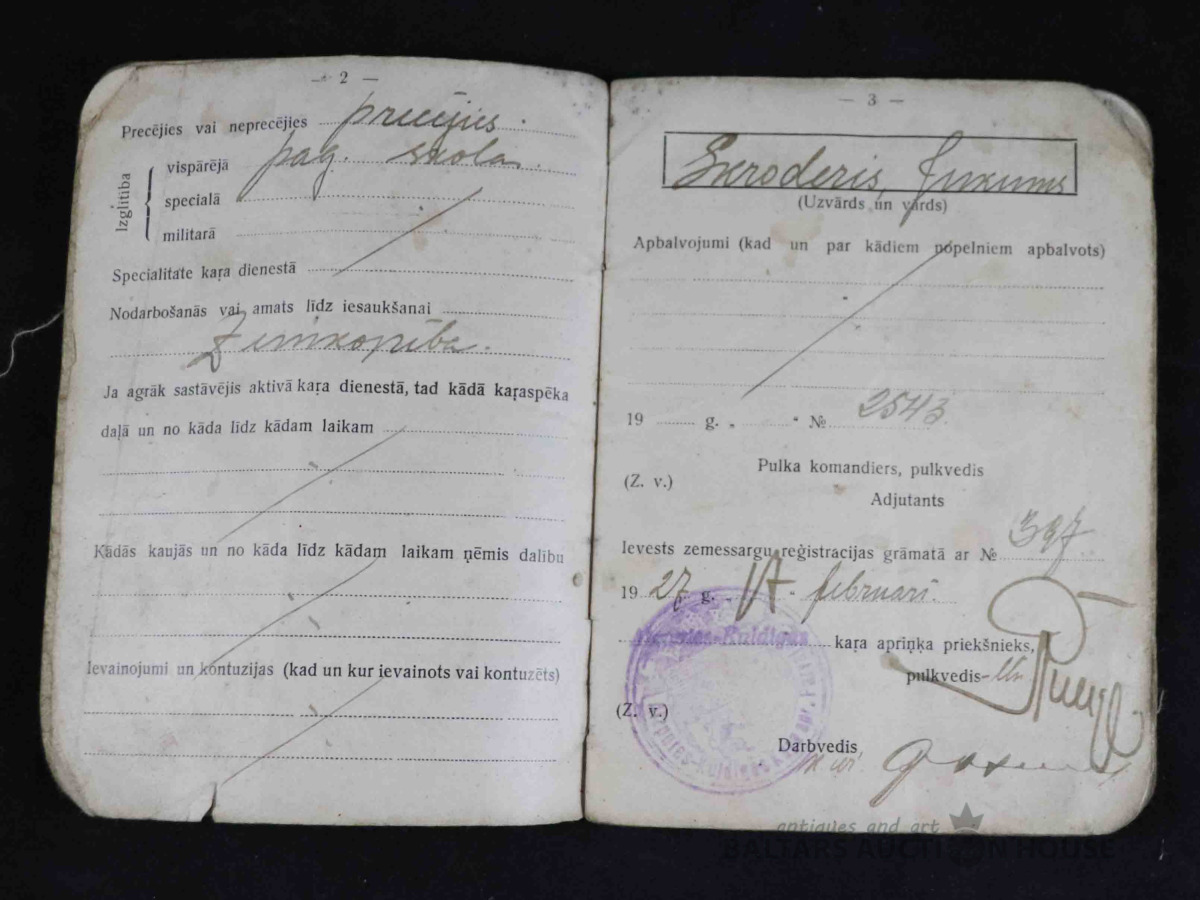 — 2 —
Precējies vai neprecējies precējies.
Izglītība
vispārējā pag. skola.
specialā
militarā
Specialitate kaŗa dienestā
Nodarbošanās vai amats līdz iesaukšanai
Zemkopība.
Ja agrāk sastāvējis aktivā kaŗa dienestā, tad kādā kaŗaspēka
daļā un no kāda līdz kādam laikam
Kādās kaujās un no kāda līdz kādam laikam ņēmis dalību
Ievainojumi un kontuzijas (kad un kur ievainots vai kontuzēts)
— 3 —
(Uzvārds un vārds)
Apbalvojumi (kad un par kādiem nopelniem apbalvots)
19 g. „ “ № 2543
Pulka komandiers, pulkvedis
(Z. v.)
Adjutants
Ievests zemessargu reģistracijas grāmatā ar № 397
1927 g. februarī.
Kuldīgas kaŗa apriņķa priekšnieks,
pulkvedis-
(Z. v.)
Darbvedis
antiques and art
BALTARS AUCTION HOUSE